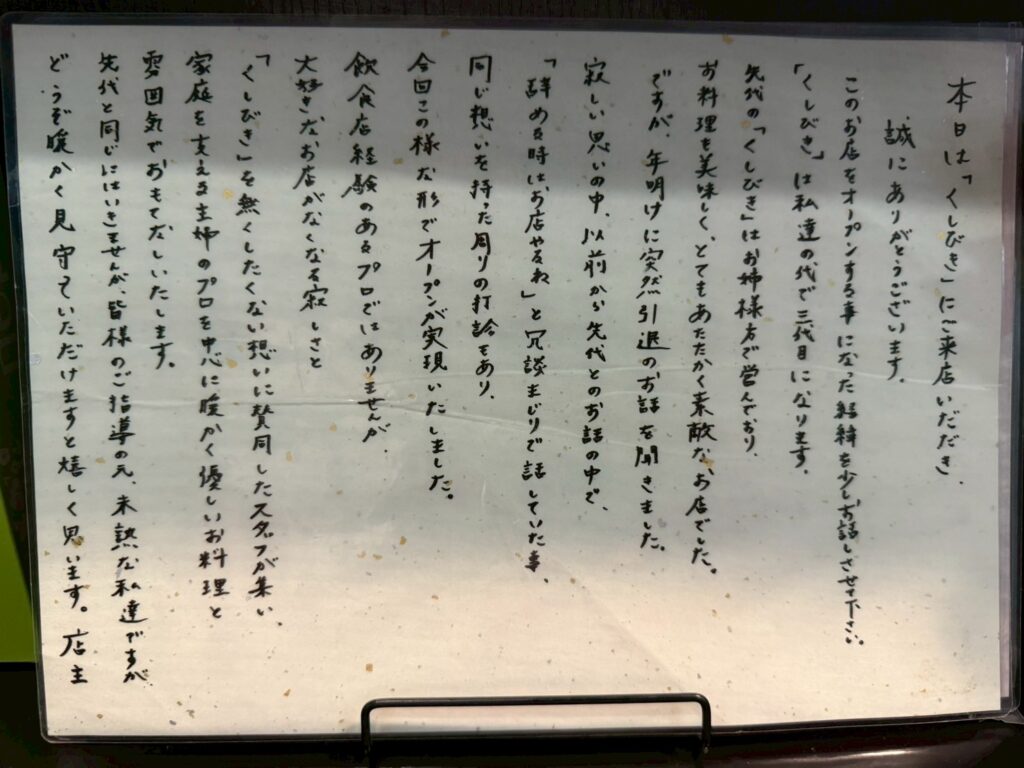 本日は「くしびき」にご来店いただき、
誠にありがとうございます。
このお店をオープンする事になった経緯を少しお話しさせて下さい。
「くしびき」は私達の代で三代目になります。
先代の「くしびき」はお姉様方で営んでおり、
お料理も美味しく、とてもあたたかく素敵なお店でした。
ですが、年明けに突然引退のお話を聞きました。
寂しい思いの中、以前から先代とのお話の中で、
「辞める時はお店やるね」と冗談まじりで話していた事、
同じ想いを持った周りの打診もあり、
今回この様な形でオープンが実現いたしました。
飲食店経験のあるプロではありませんが、
大好きなお店がなくなる寂しさと
「くしびき」を無くしたくない想いに賛同したスタッフが集い、
家庭を支える主婦のプロを中心に暖かく優しいお料理と
雰囲気でおもてなしいたします。
先代と同じにはいきませんが、皆様のご指導の元、未熟な私達ですが
どうぞ暖かく見守っていただけますと嬉しく思います。店主